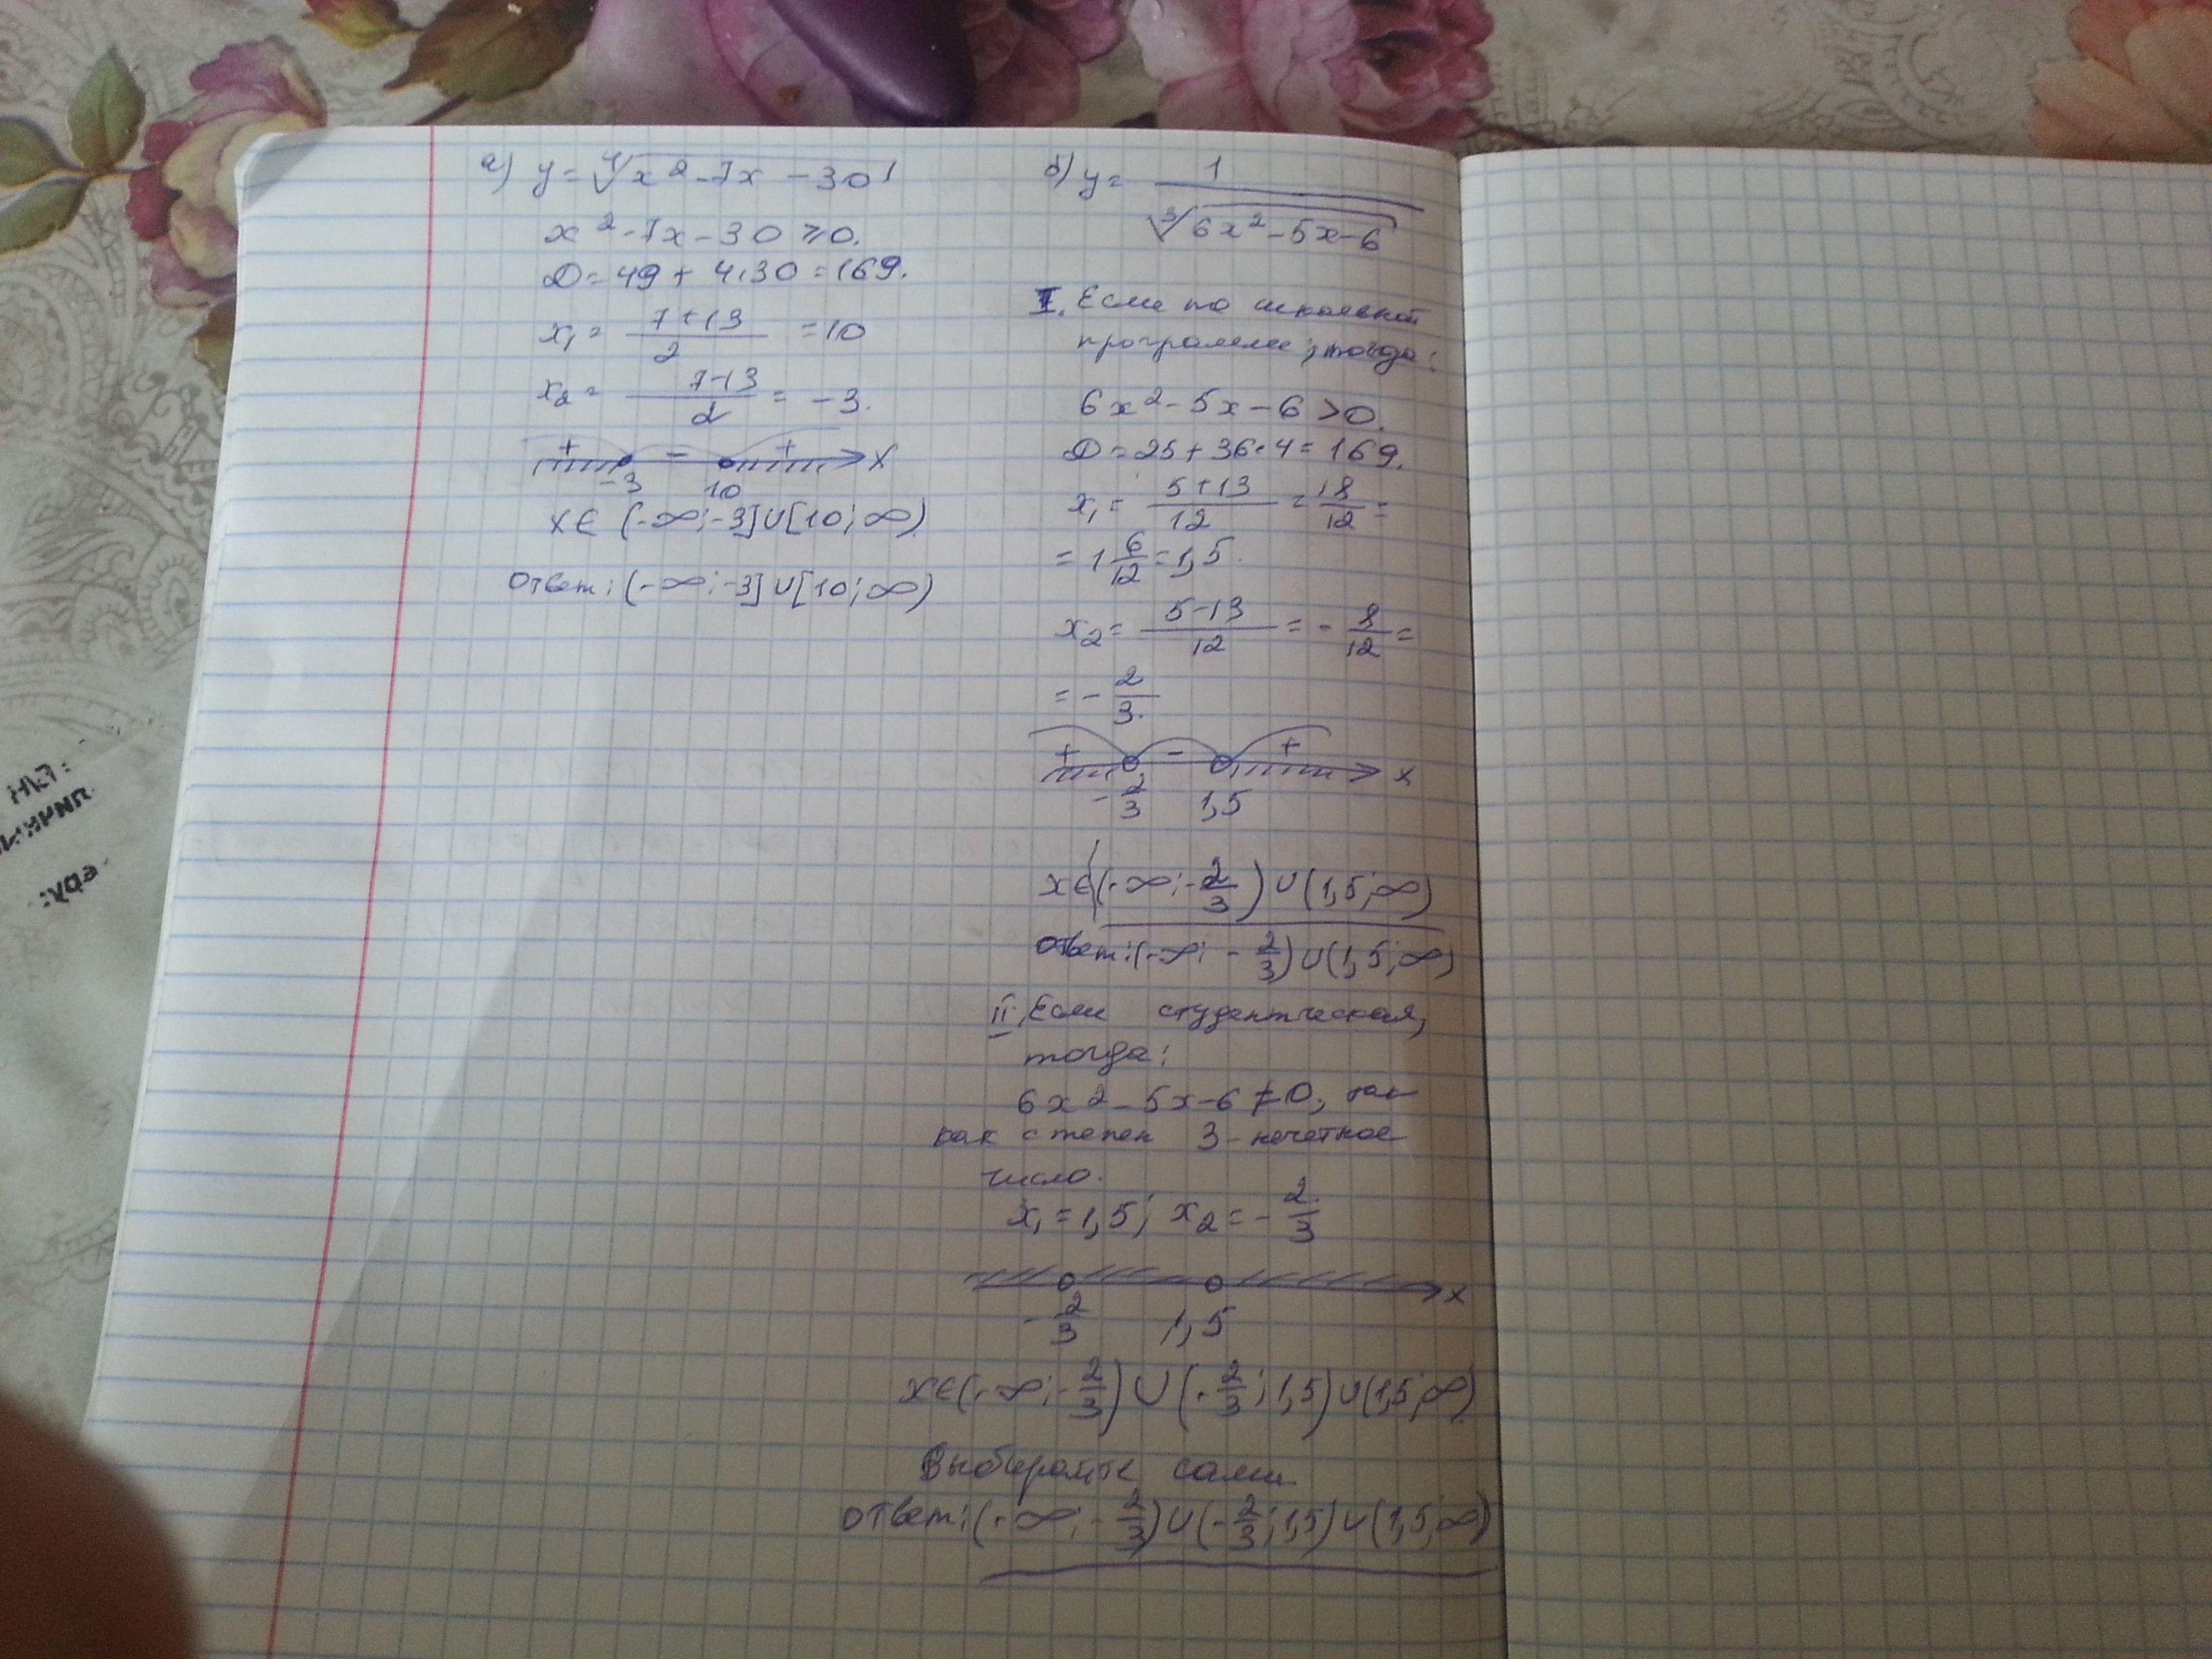 а) y = ∜(x² - 7x - 30)
x² - 7x - 30 ⩾ 0.
D = 49 + 4·30 = 169.
x₁ = (7+13)/2 = 10
x₂ = (7-13)/2 = -3.
+ - + x
-3 10
x ∈ (-∞; -3] ∪ [10; ∞)
Ответ: (-∞; -3] ∪ [10; ∞)
б) y = 1/∛(6x² - 5x - 6)
I. Если по школьной
программе, тогда:
6x² - 5x - 6 > 0.
D = 25 + 36·4 = 169.
x₁ = (5+13)/12 = 18/12 =
= 1 6/12 = 1,5.
x₂ = (5-13)/12 = - 8/12 =
= - 2/3.
+ - + x
- 2/3 1,5
x ∈ (-∞; - 2/3) ∪ (1,5; ∞)
Ответ: (-∞; - 2/3) ∪ (1,5; ∞)
II. Если студентческая,
тогда:
6x² - 5x - 6 ≠ 0, так
как степен 3 - нечетное
число.
x₁ = 1,5; x₂ = - 2/3
x
- 2/3 1,5
x ∈ (-∞; - 2/3) ∪ (- 2/3; 1,5) ∪ (1,5; ∞)
Выбирайте сами.
Ответ: (-∞; - 2/3) ∪ (- 2/3; 1,5) ∪ (1,5; ∞)